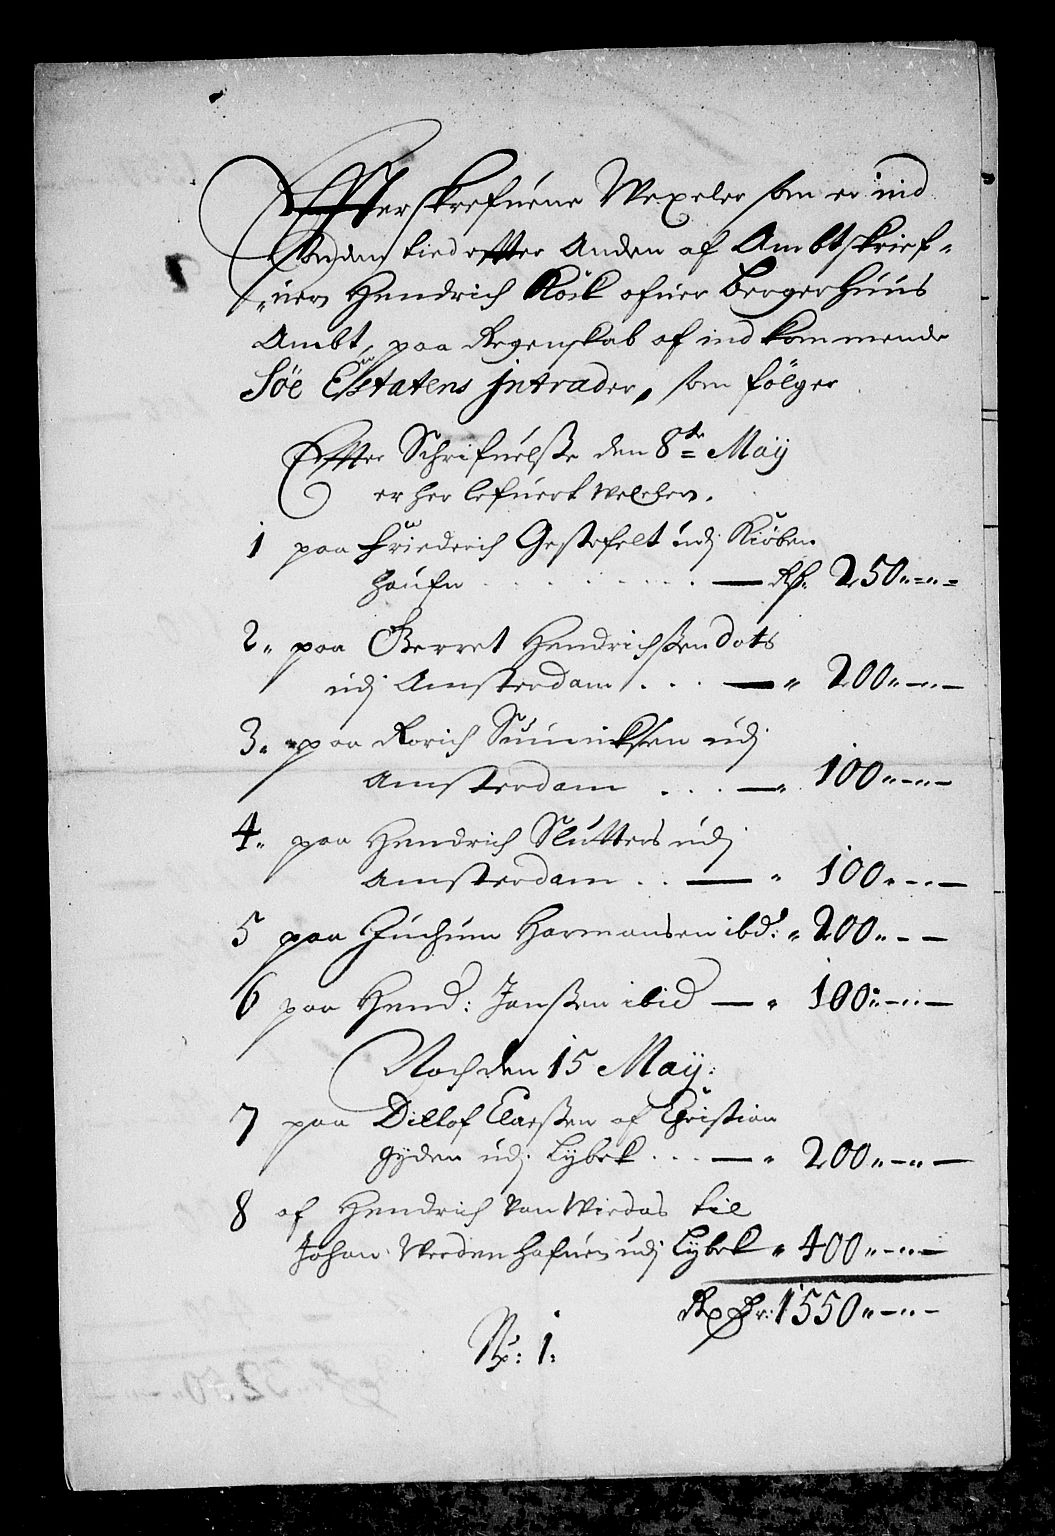 Effterskrefuene Wexeler som er ind
den tied effter Anden af Ambtskrief-
uern Hendrich Röck ofuer Bergerhuus
Ambt, paa Regenskab af indkommende
Söe Estatens Intrader, som fölger
Effter Schrifuelsse den 8te May
er her lefuert welchen.
1 paa Friederich Gestefelt udj Kiöben
haufn . . . . . . . — Rdr. 250,,-,,-
2. paa Gerret Hendrichssen dots
udj Amsterdam . . . — " 200,,-,,-
3. paa Rorich udj
Amsterdam . . . — " 100,,-,,-
4. paa Hendrich Slutters udj
Amsterdam . . — " 100,,-,,-
5 paa Juchum Harmansen ibd: " 200,,- -
6 paa Hend: Janssen ibid — " 100,,-,,-
Noch den 15 May:
7 paa Ditlof Claessen af Christian
Gyden udj Lybek . . . — " 200,,-,,-
8 af Hendrich Van Wirdas til
Johan Werdenhafuen udj Lybek " 400,,-,,-
Rdr: 1550,,-,,-
No: 1: